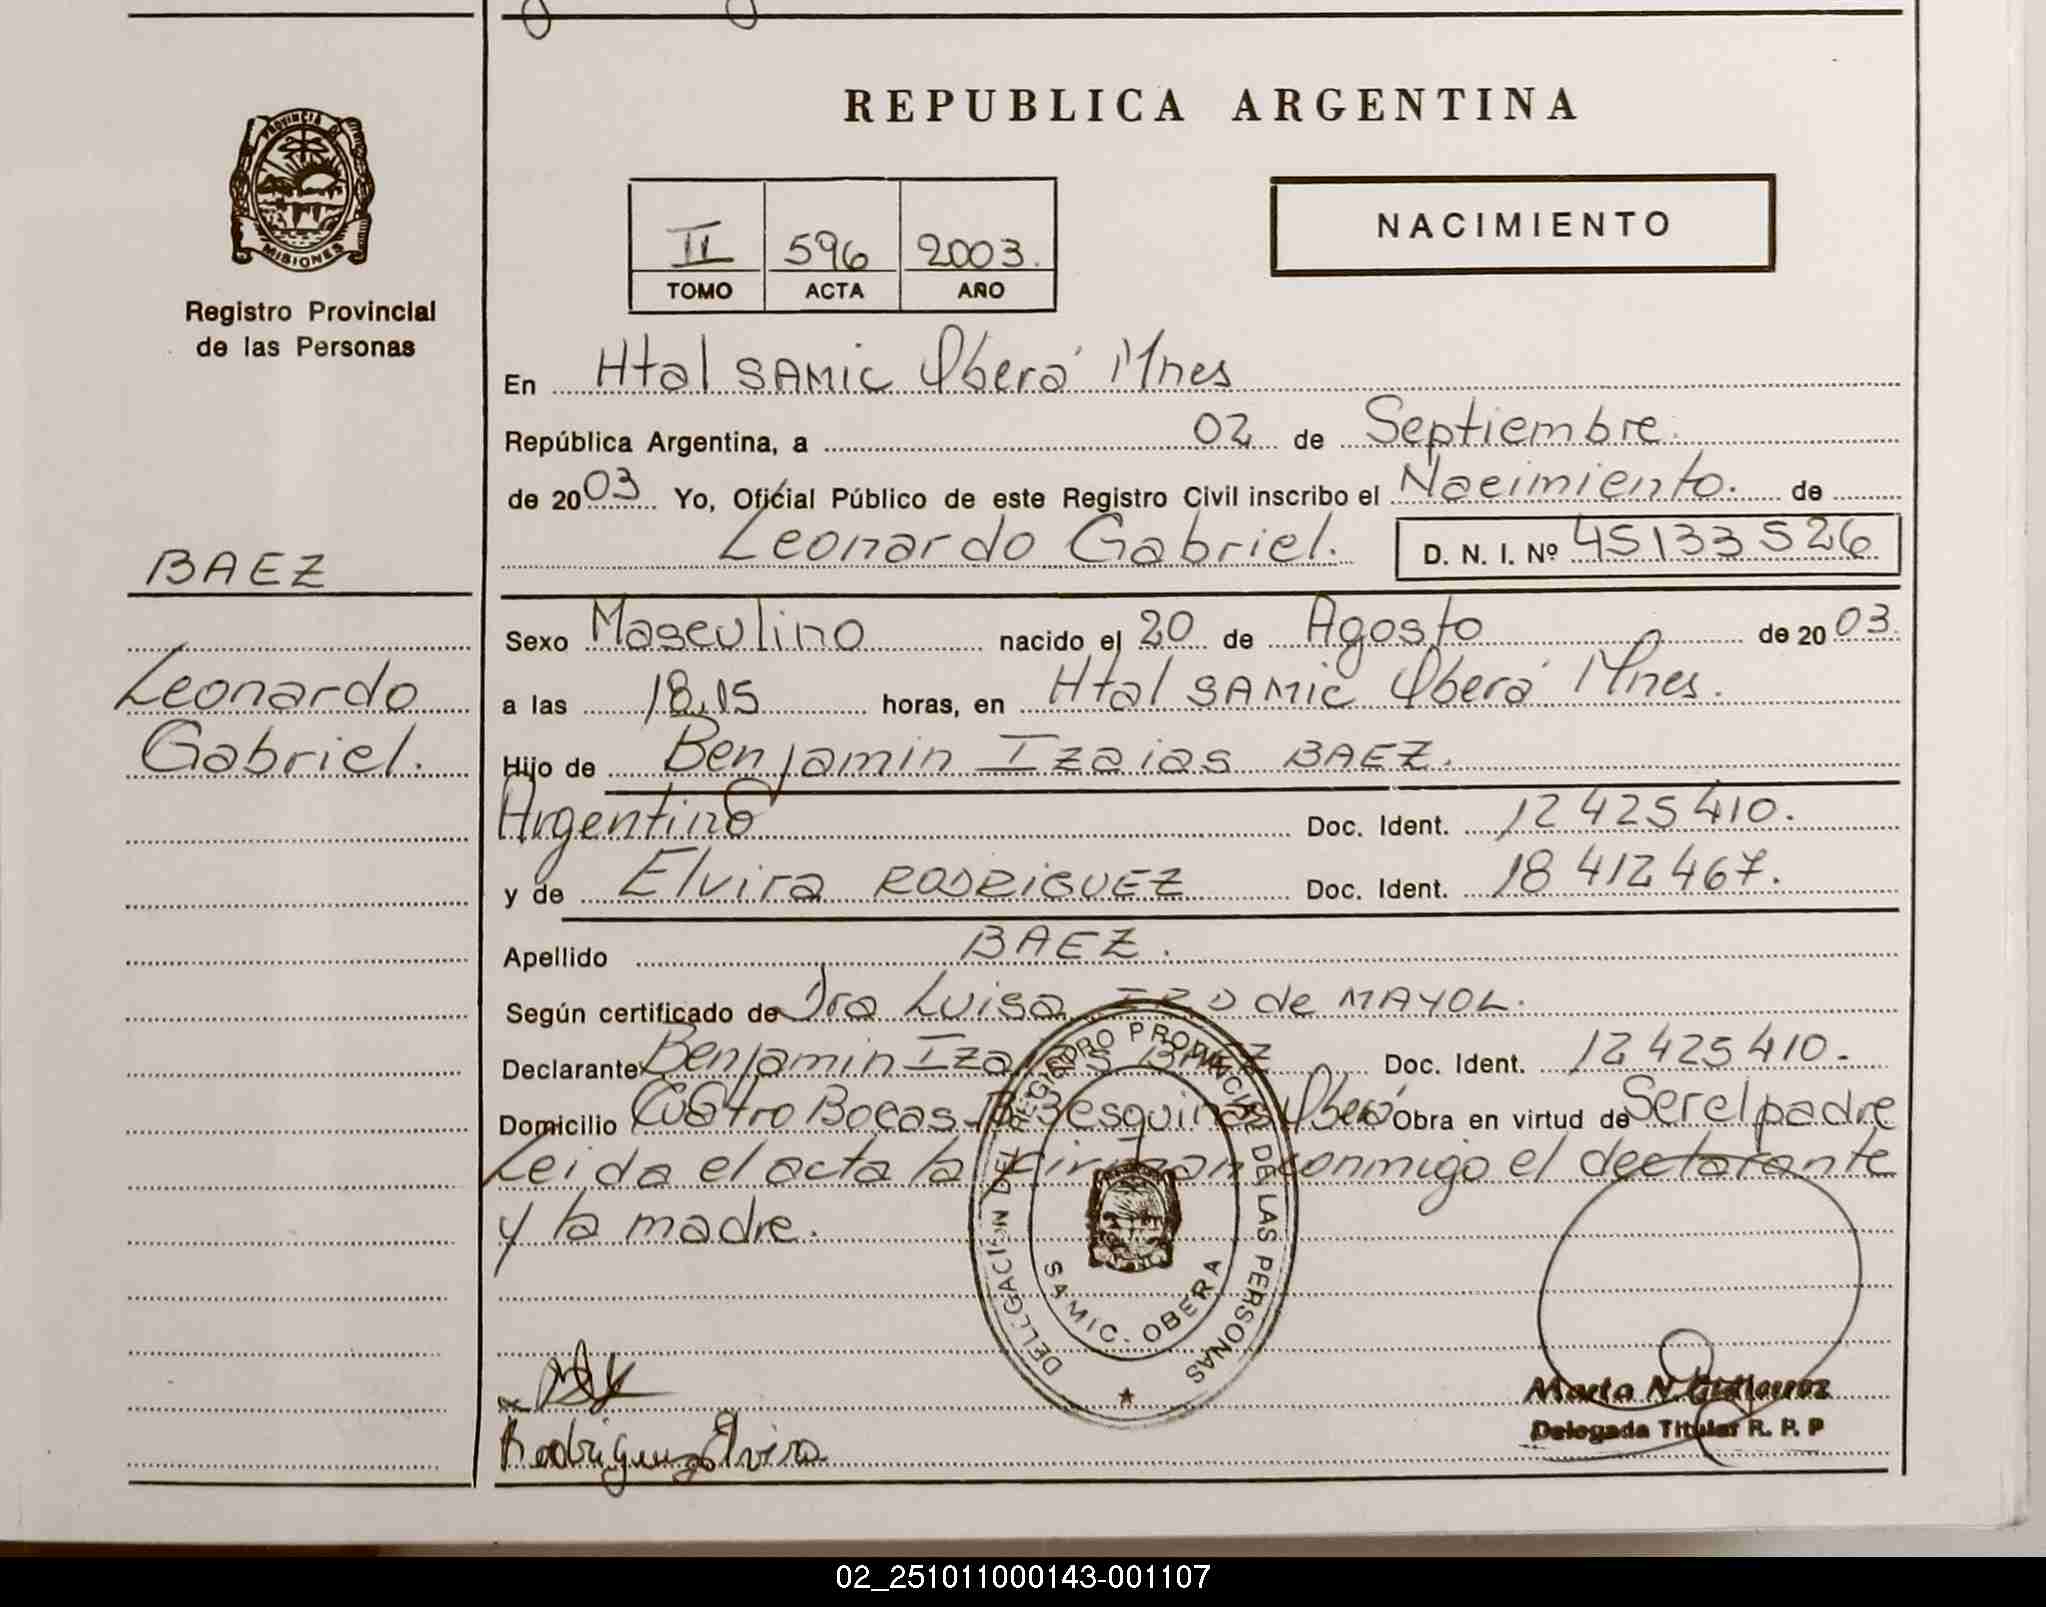 REPUBLICA ARGENTINA
PROVINCIA DE
MISIONES
Registro Provincial
de las Personas
II 596 2003.
TOMO ACTA AÑO
NACIMIENTO
En Htal SAMIC Oberá Mnes
República Argentina, a 02 de Septiembre.
de 2003 Yo, Oficial Público de este Registro Civil inscribo el Nacimiento. de
Leonardo Gabriel. D. N. I. Nº 45133526
BAEZ
Leonardo
Gabriel.
Sexo Masculino nacido el 20 de Agosto de 2003.
a las 18,15 horas, en Htal SAMIC Oberá Mnes.
Hijo de Benjamin Izaias BAEZ.
Argentino Doc. Ident. 12 425 410.
y de Elvira RODRIGUEZ Doc. Ident. 18 412 467.
Apellido BAEZ.
Según certificado de Dra Luisa de MAYOL.
Declarante Benjamin Izaias BAEZ Doc. Ident. 12 425 410.
Domicilio Cuatro Bocas esquina Oberá Obra en virtud de Ser el padre
Leida el acta la firman conmigo el declarante
y la madre.
DELEGACION DEL REGISTRO PROVINCIAL DE LAS PERSONAS
SAMIC. OBERA
Rodriguez Elvira
Marta N. Gutierrez
Delegada Titular R. P. P
02_251011000143-001107